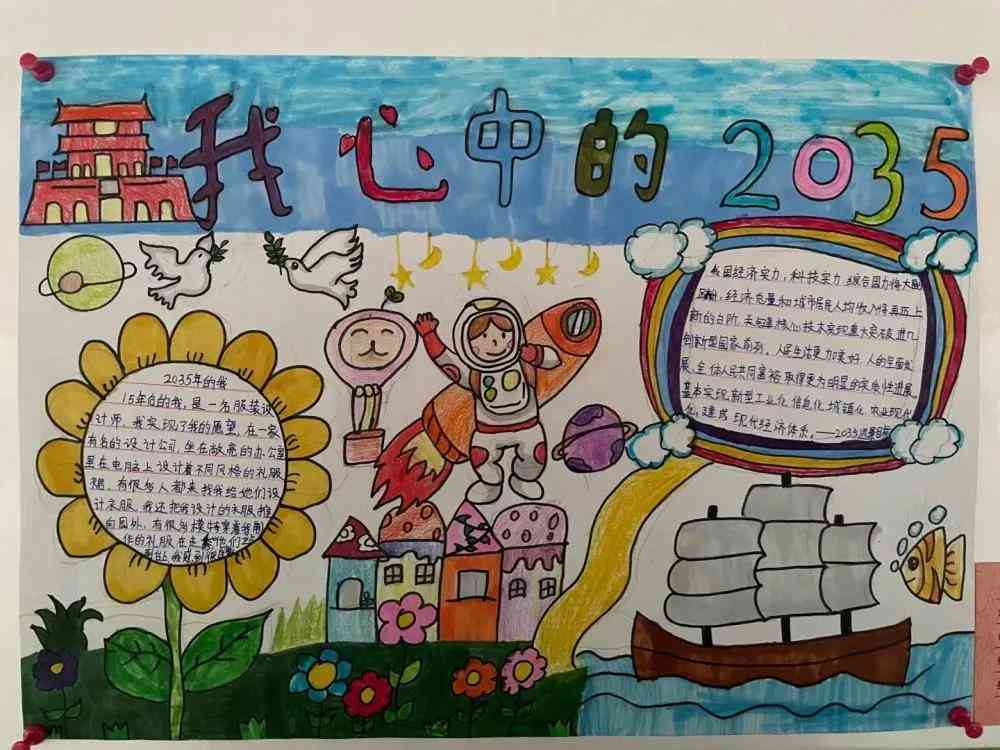 我心中的2035
2035年的我
15年后的我,是一名服装设
计师,我实现了我的愿望,在一家
有名的设计公司,坐在敞亮的办公室
里在电脑上设计着不同风格的礼服
裙,有很多人都来找我给她们设
计衣服,我还把我设计的衣服推
向国外,有很多模特穿着我制
作的礼服在走
我感到很
我国经济实力,科技实力,综合国力将大幅
经济总量和城市居民人均收入将再迈上
新的台阶,关键核心技术实现重大突破,进入
创新型国家前列。人民生活更加美好,人的全面发
展,全体人民共同富裕取得更为明显的实质性进展,
基本实现新型工业化,信息化,城镇化,农业现代
化,建成现代经济体系。——2035远景目标